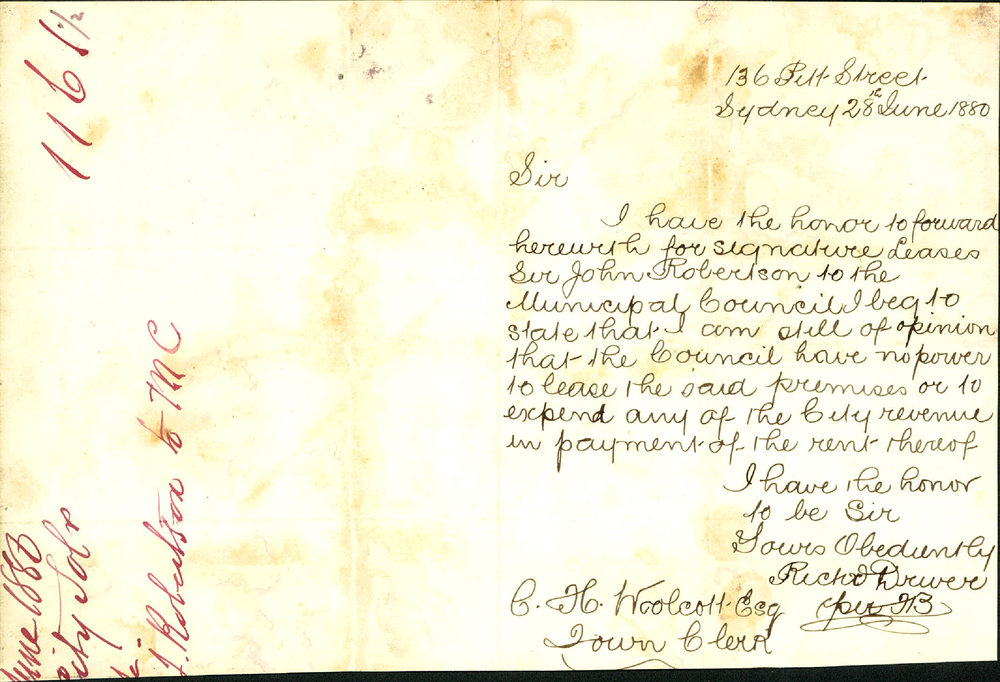 136 Pitt Street
Sydney 28th June 1880
Sir
I have the honor to forward
herewith for signature Leases
Sir John Robertson to the
Municipal Council I beg to
state that I am still of opinion
that the Council have no power
to lease the said premises or to
expend any of the City revenue
in payment of the rent thereof
I have the honor
to be Sir
Yours Obediently
Richd Driver
per HB
C. H. Woolcott Esq
Town Clerk
116
June 1880
City Solr
J. Robertson to MC